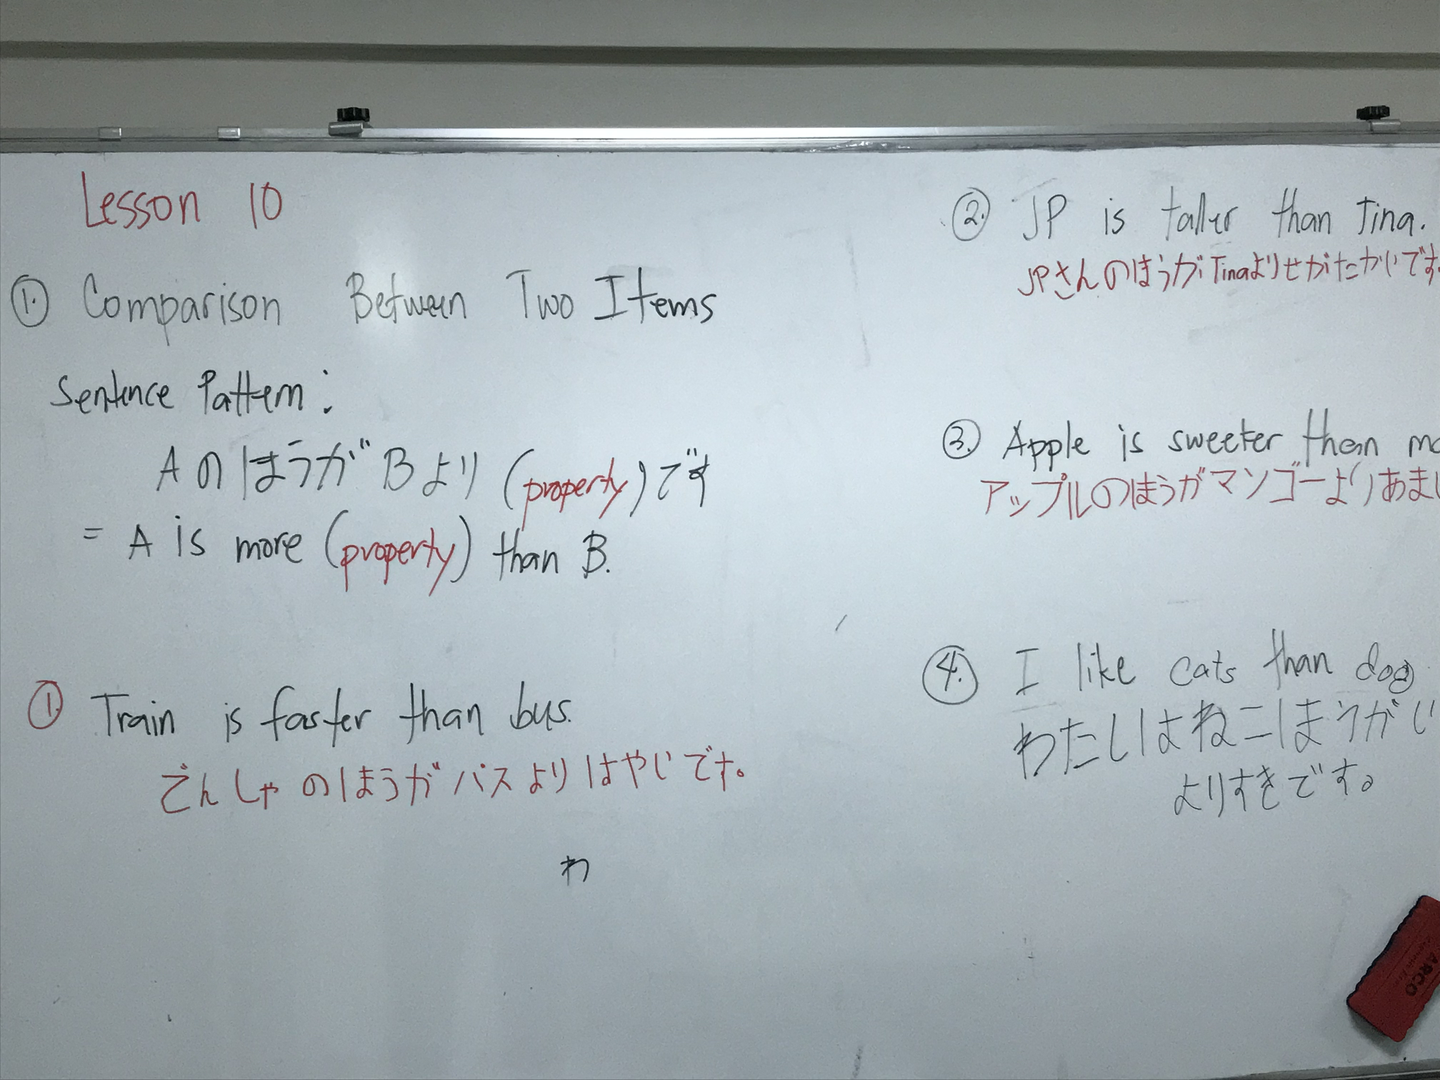 Lesson 10
①. Comparison Between Two Items
Sentence Pattern:
AのほうがBより(property)です
= A is more (property) than B.
① Train is faster than bus.
でんしゃのほうがバスよりはやいです。
わ
②. JP is taller than Tina.
JPさんのほうがTinaよりせがたかいです。
③. Apple is sweeter than
アップルのほうがマンゴーよりあまい
④. I like cats than dog
わたしはねこほうがい
よりすきです。
ARCO